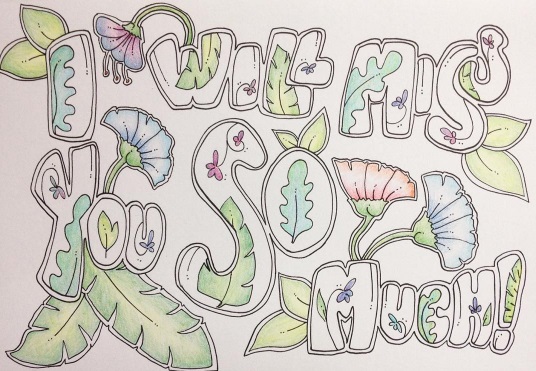 I Will Miss
You So
Much!